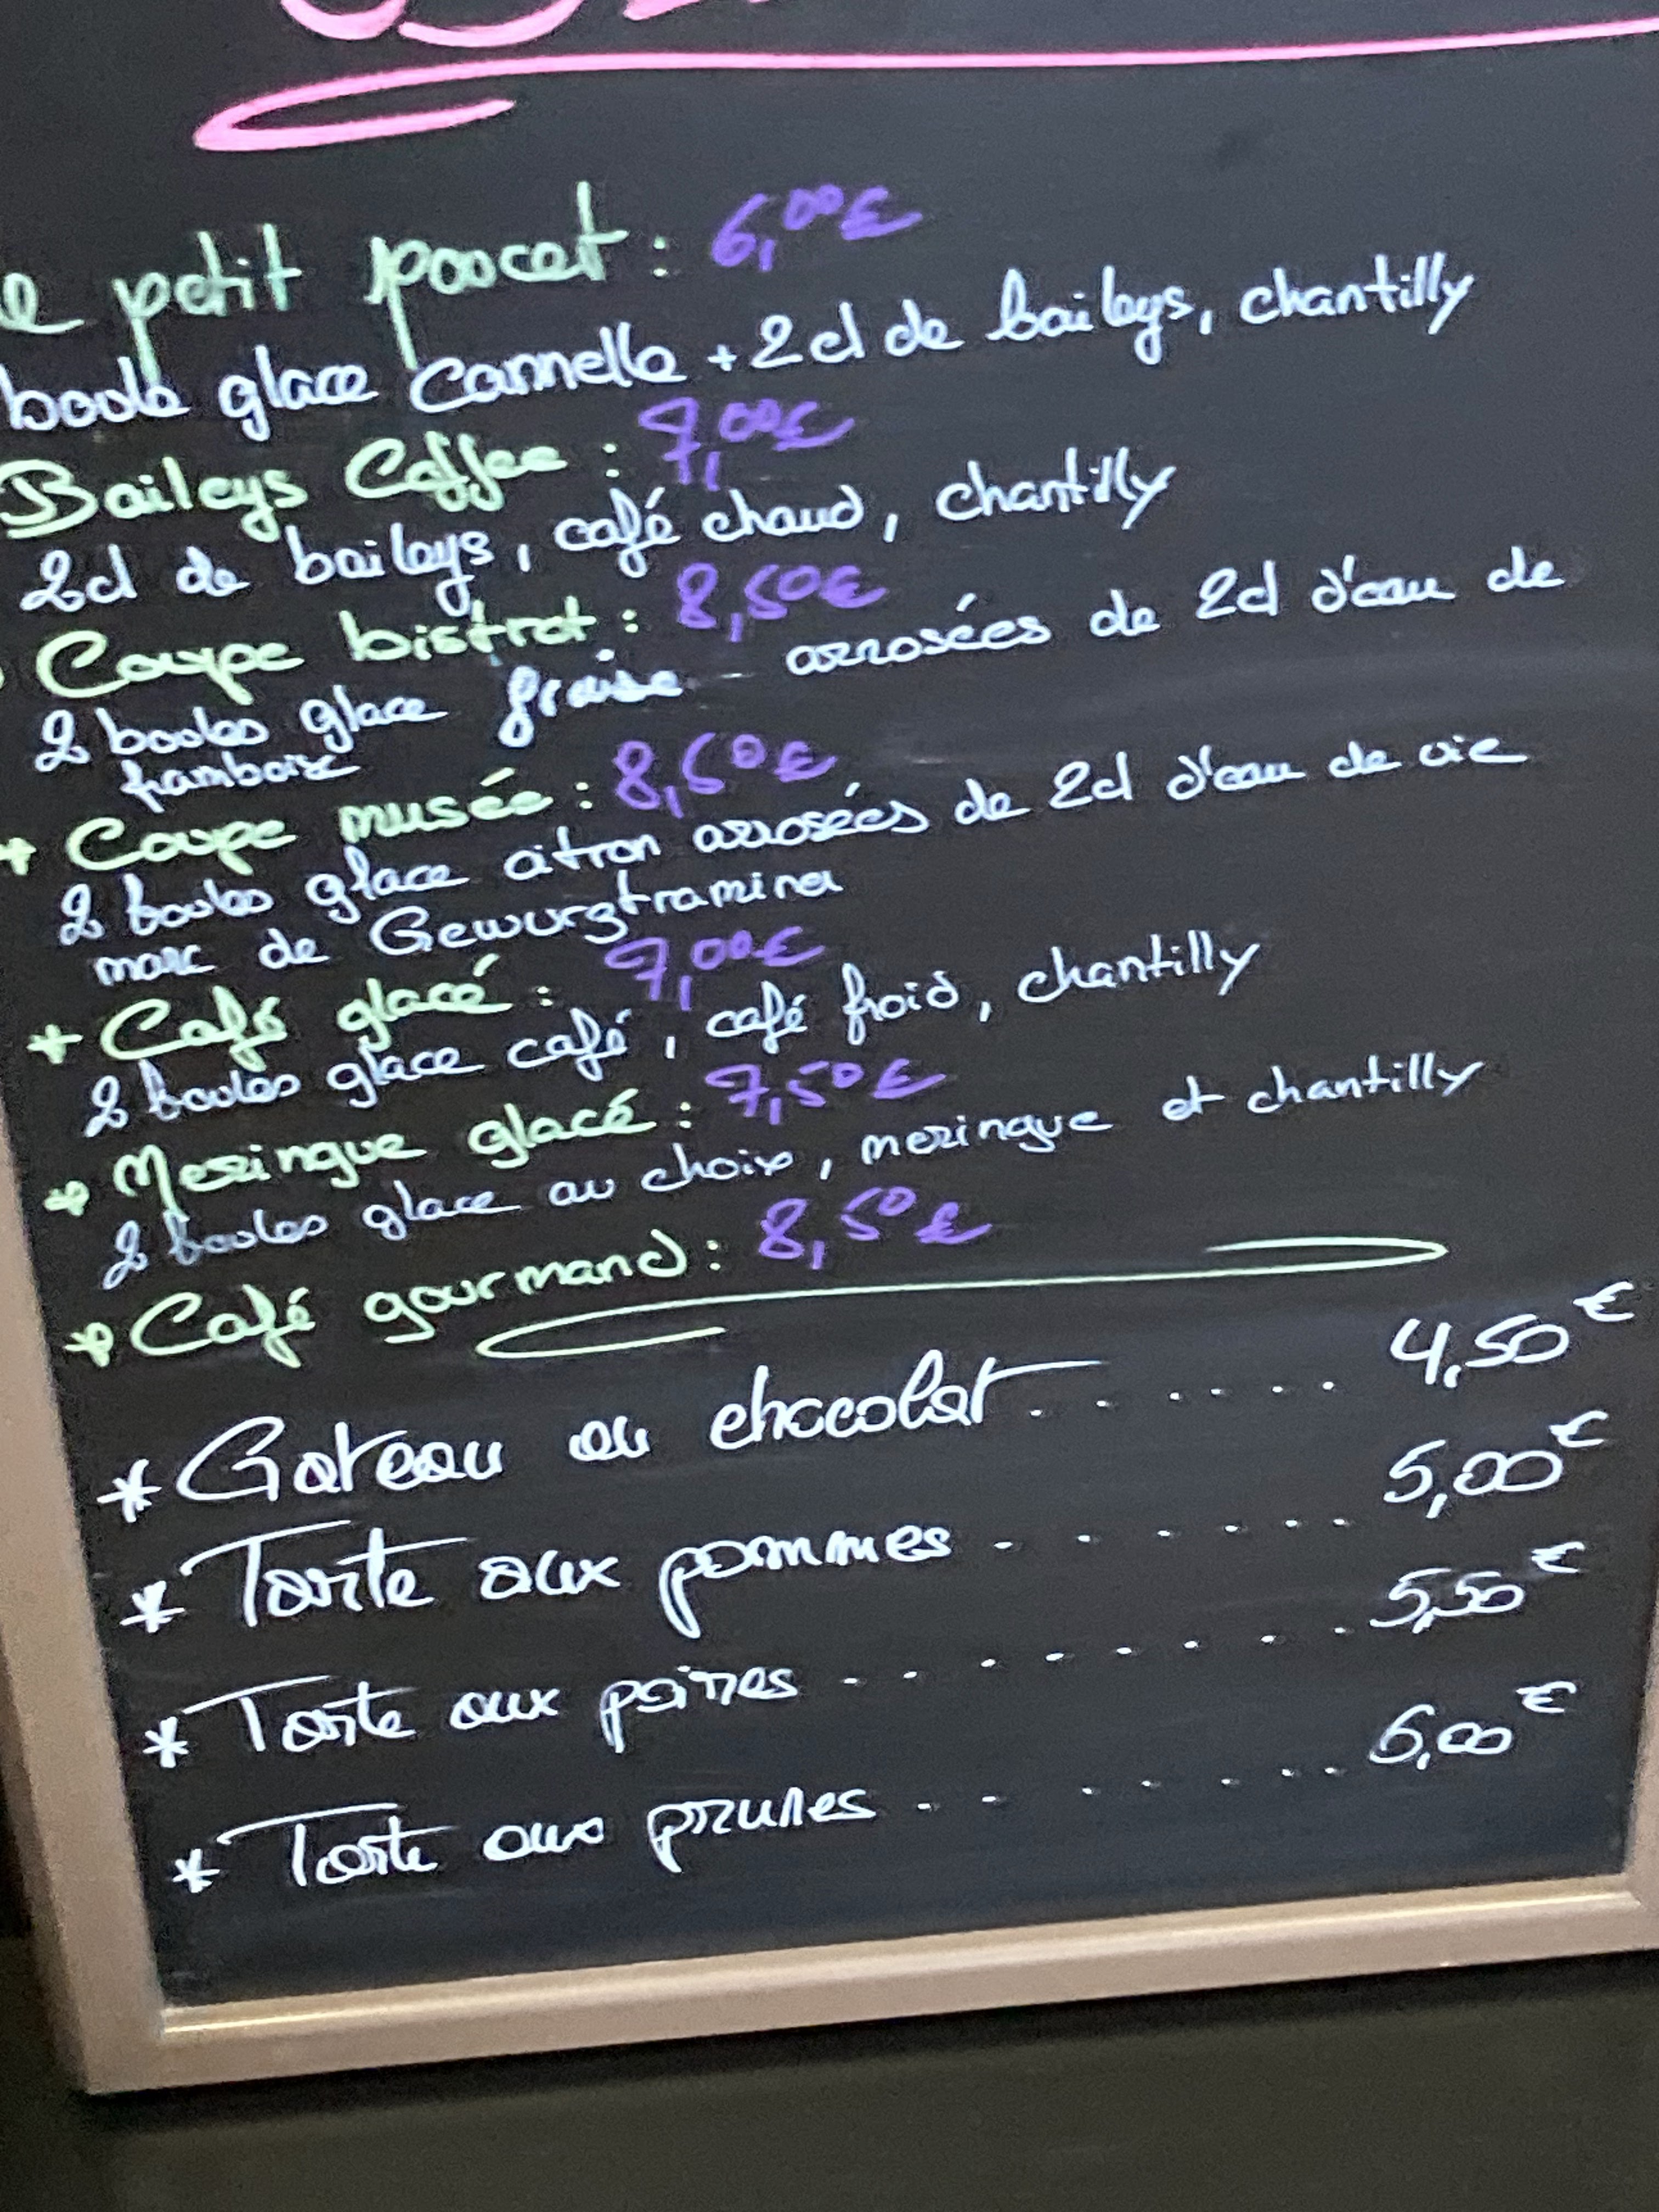 petit poucet : 6,00€
boule glace Cannelle + 2cl de baileys, chantilly
Baileys Coffee : 7,00€
2cl de baileys, café chaud, chantilly
Coupe bistrot : 8,50€
2 boules glace fraise arrosées de 2cl d'eau de
framboise
+ Coupe musée : 8,50€
2 boules glace citron arrosées de 2cl d'eau de vie
marc de Gewurgtraminer
+ Café glacé : 7,00€
2 boules glace café, café froid, chantilly
+ Meringue glacé : 7,50€
2 boules glace au choix, meringue et chantilly
+ Café gourmand : 8,50€
* Gateau au chocolat ...... 4,50€
* Tarte aux pommes ....... 5,00€
* Tarte aux poires ........ 5,50€
* Tarte aux prunes ....... 6,00€